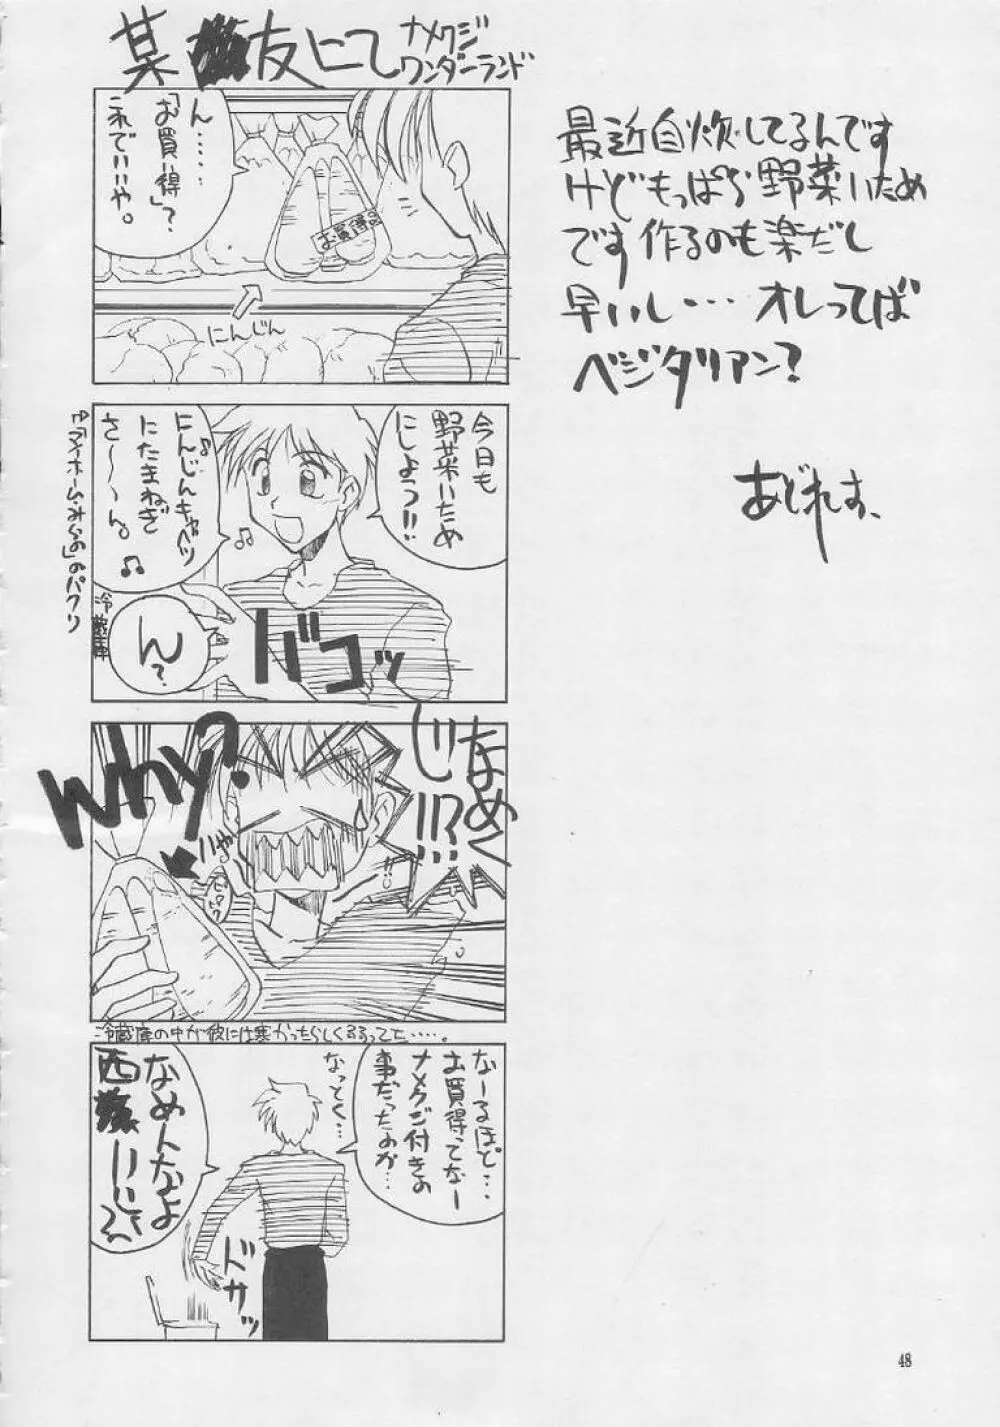 某 友にて
ナメクジ
ワンダーランド
ん・・・・・
「お買い得」?
これでいいや。
お買得品
にんじん
最近自炊してるんです
けどもっぱら野菜いため
です作るのも楽だし
早いし・・・オレってば
ベジタリアン?
あじれす、
今日も
野菜いため
にしよっ!!
にんじんキャベツ♪
にたまねぎ
さ〜〜ん。♪
♪
↑「マイホームみらの」のパクリ
冷蔵庫
ん?
バコッ
なめく
じ!!?
Why?
いや〜
ピトッ
冷蔵庫の中が彼には寒かったらしくまるまってた・・・・・。
なーるほど・・・
お買得ってなー
ナメクジ付きの
事だったのか・・・
なっとく・・・
なめんなよ
西
ドサッ
48